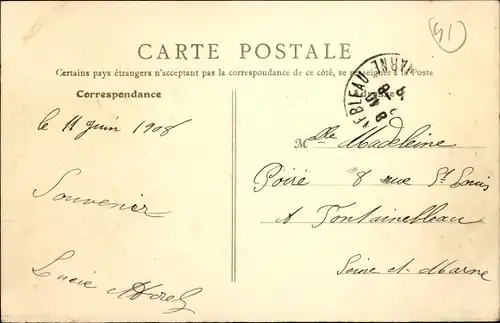 41
CARTE POSTALE
Certains pays étrangers n'acceptant pas la correspondance de ce côté, se renseigner à la Poste
Correspondance
le 11 Juin 1908
Souvenir
Lucie Morel
Mlle Madeleine
Poiré 8 rue St Louis
A Fontainebleau
Seine et Marne